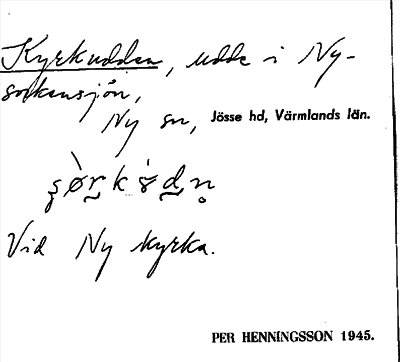 Kyrkudden, udde i Ny-
sockensjön,
Ny sn, Jösse hd, Värmlands län.
Vid Ny kyrka.
PER HENNINGSSON 1945.